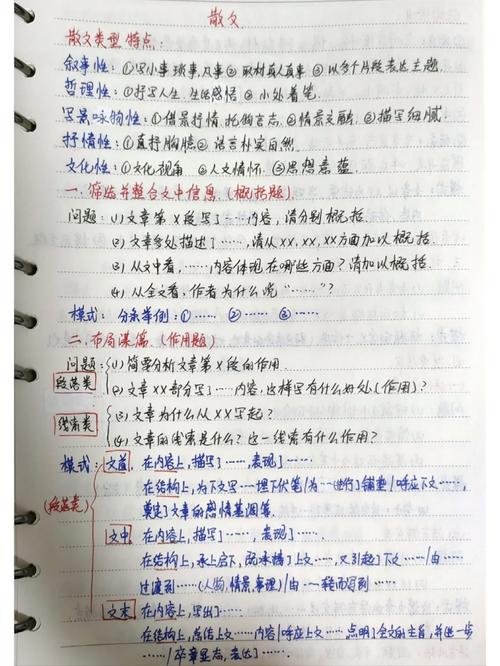 散文
散文类型特点:
叙事性:①写小事琐事,凡事②取材真人真事 ③以多个片段表达主题
哲理性:①抒写人生,生活感悟 ②小处着笔.
写景咏物性:①借景抒情,托物言志 ②情景交融,③描写细腻.
抒情性:①直抒胸臆 ②语言朴实自然.
文化性:①文化视角 ②人文情怀.③思想意蕴.
一.筛选并整合文中信息(概括题)
问题:(1)文章第X段写了……内容,请分别概括.
(2)文章多处描述了……,请从XX,XX,XX方面加以概括.
(3)从文中看,……内容体现在哪些方面?请加以概括.
(4)从全文看,作者为什么说"……"?
模式:分条举例:①…… ②…… ③……
二.布局谋篇.(作用题)
问题:(1)简要分析文章第X段的作用.
段落类 (2)文章XX部分写了……内容,这样写有什么好处(作用)?
线索类 (3)文章为什么从XX写起?
(4)文章的线索是什么?这一线索有什么作用?
模式:文首.在内容上,描写了……,表现了……
在结构上,为下文写…埋下伏笔/为…进行了铺垫/呼应下文……,
(段落类) 奠定了文章的感情基调等.
文中 在内容上,描写了……,表现了……
在结构上,承上启下,既承接了上文……,又引起了下文……/由……
过渡到……(人物,情景,事理)/由…转而写到……
文末 在内容上,写出了……
在结构上,总结上文……内容/呼应上文……点明了全文的主旨,并进一步
……/卒章显志,表达了……